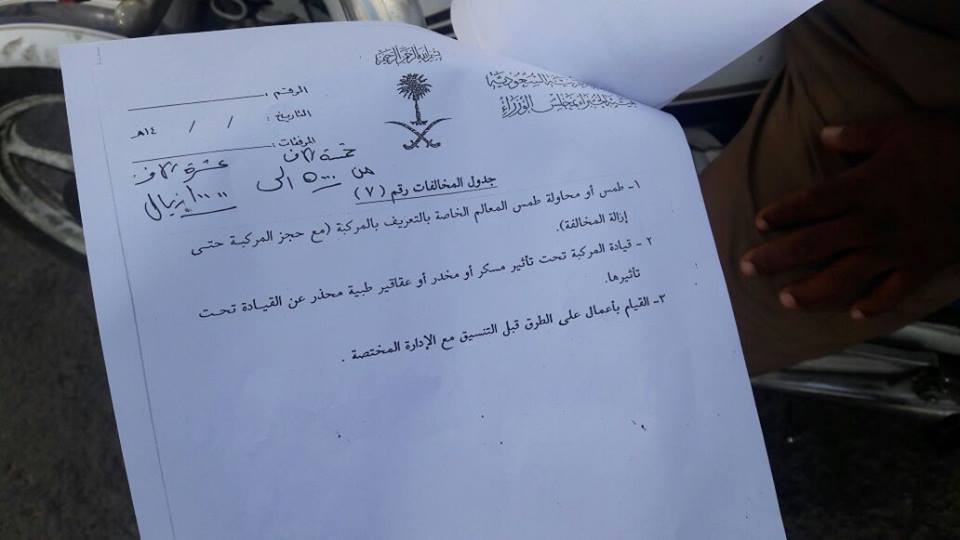 بسم الله الرحمن الرحيم
السعودية
هيئة الخبراء بمجلس الوزراء
الرقم :
التاريخ : / / ١٤هـ
المرفقات :
جدول المخالفات رقم ( ٧ )
من ٥٠٠٠ الى ١٠٠٠٠ ريال
خمسة الاف عشرة الاف
١- طمس أو محاولة طمس المعالم الخاصة بالتعريف بالمركبة (مع حجز المركبة حتى
إزالة المخالفة).
٢ - قيادة المركبة تحت تأثير مسكر أو مخدر أو عقاقير طبية محذر عن القيادة تحت
تأثيرها.
٣- القيام بأعمال على الطرق قبل التنسيق مع الإدارة المختصة .